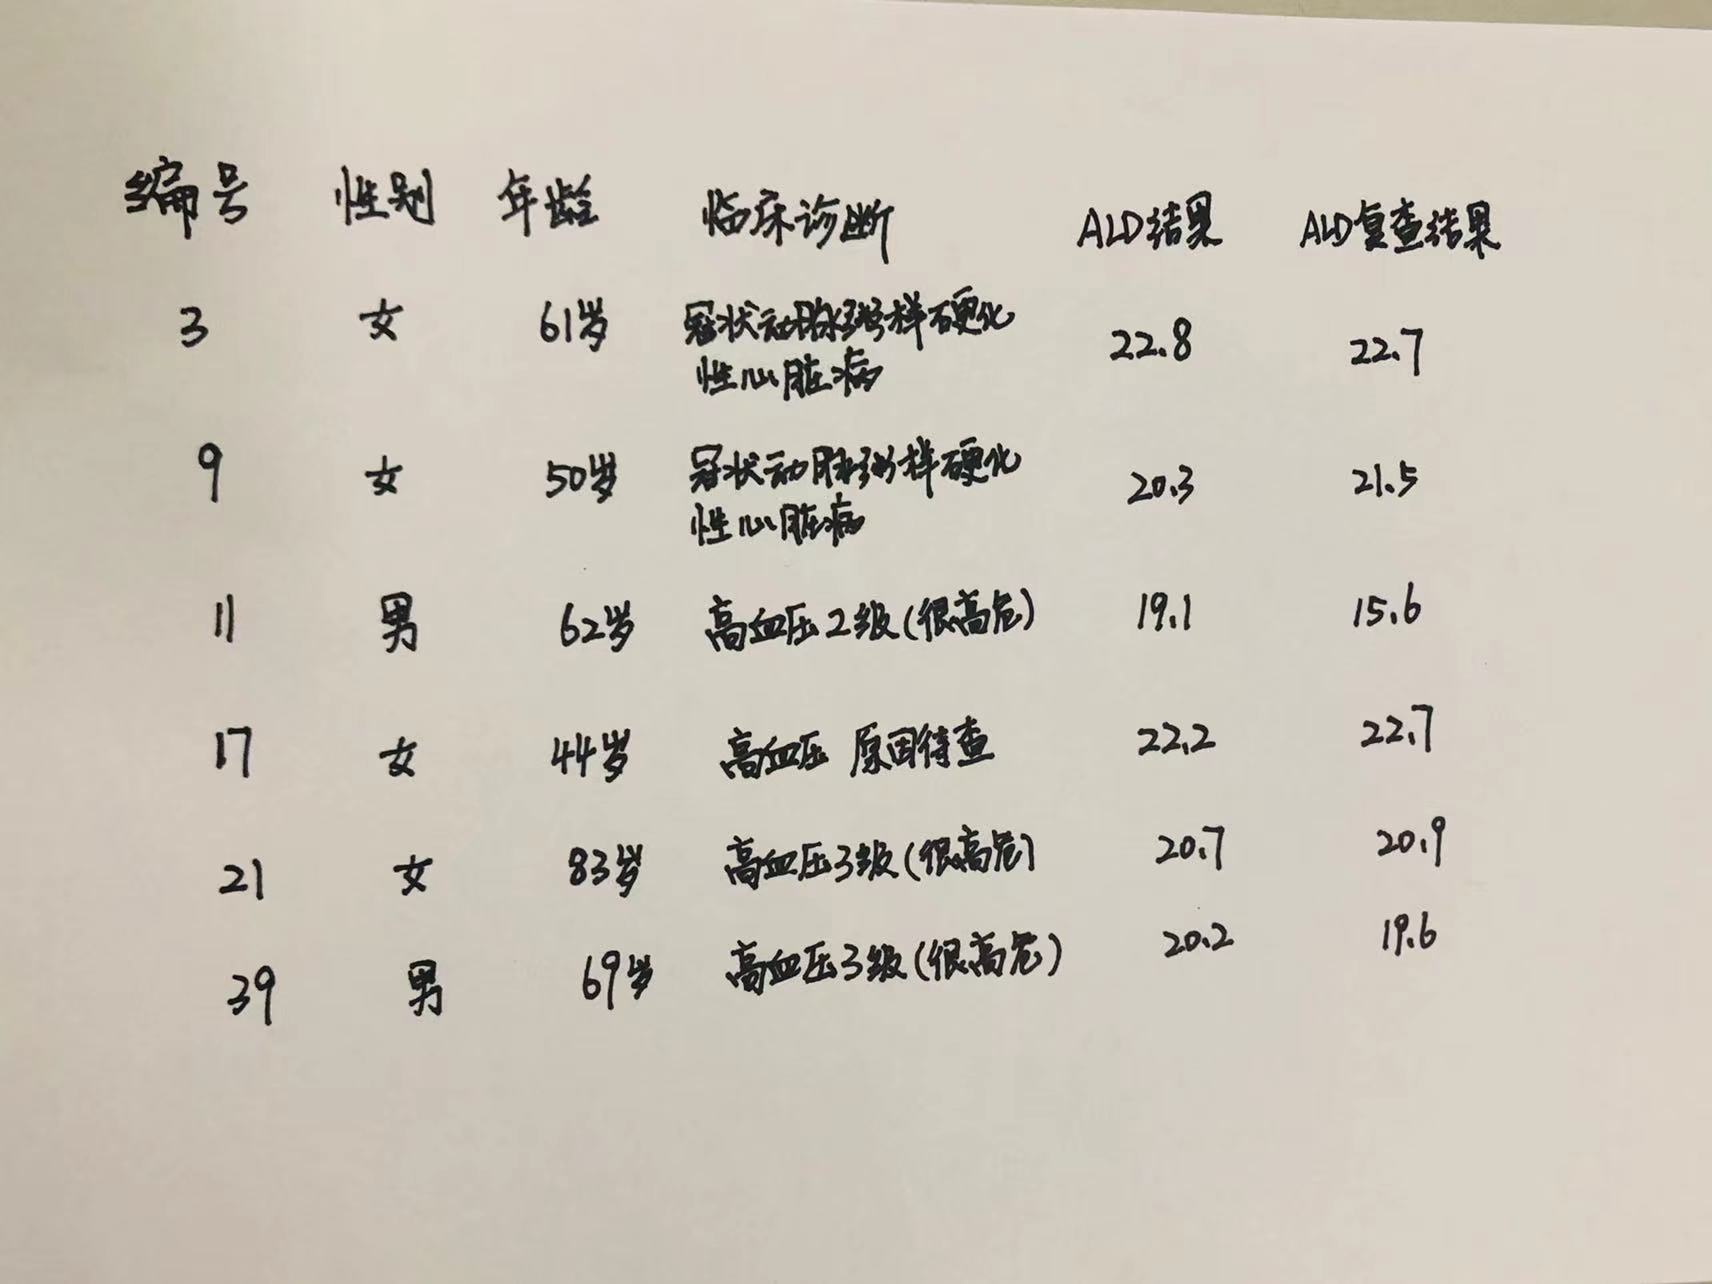 编号 性别 年龄 临床诊断 ALD结果 ALD复查结果
3 女 61岁 冠状动脉粥样硬化 22.8 22.7
性心脏病
9 女 50岁 冠状动脉粥样硬化 20.3 21.5
性心脏病
11 男 62岁 高血压2级(很高危) 19.1 15.6
17 女 44岁 高血压 原因待查 22.2 22.7
21 女 83岁 高血压3级(很高危) 20.7 20.9
39 男 69岁 高血压3级(很高危) 20.2 19.6